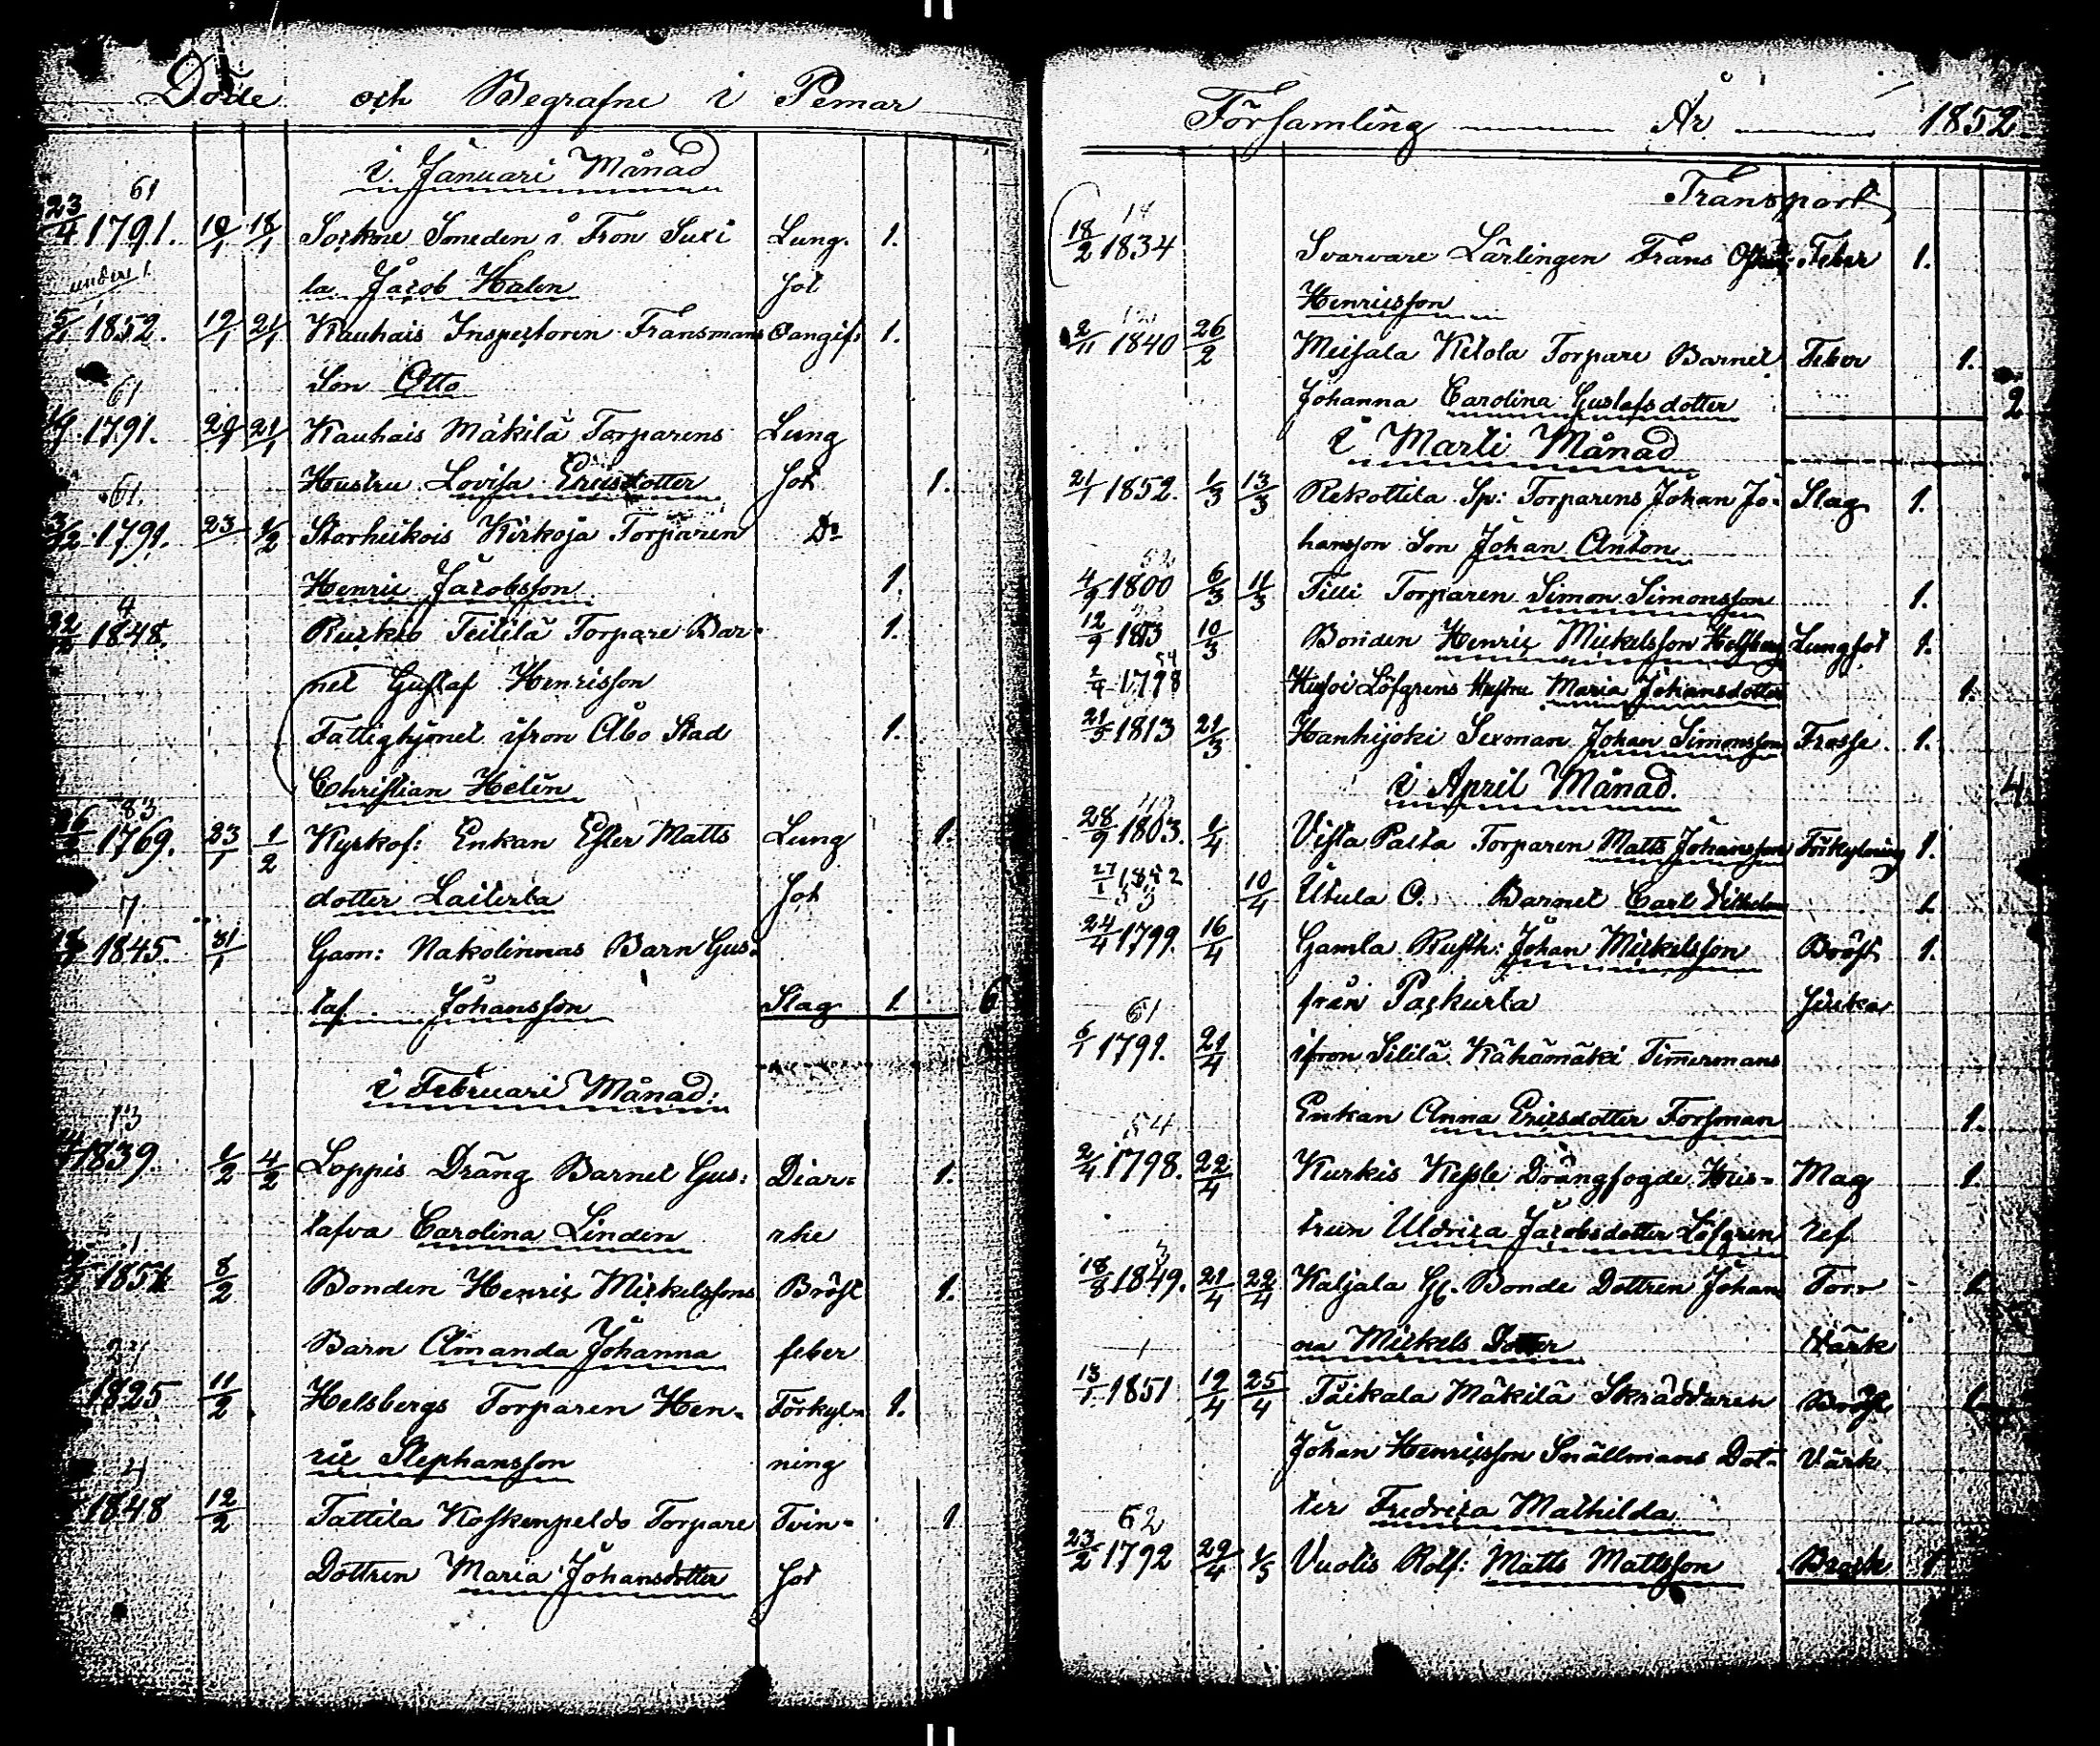 Döde och Begrafne i Pemar
i Januari Månad
61
23/4 1791. 10/1 18/1 Sorkne Smeden i Fron Suxi Lung. 1.
under 1.
la Jacob Halen Sot
5/1 1852. 19/1 21/1 Kauhais Inspectoren Fransmans Oangif. 1.
Son Otto
61
1791. 20/1 21/1 Kauhais Mäkilä Torparens Lung
Hustru Lovisa Ericsdotter Sot 1.
61.
1791. 23 1/2 Storheikois Kirkoja Torparen Do
Henric Jacobsson 1.
4
1848. Teililä Torpare Bar- 1.
net Gustaf Henrisson
Fattighjonet ifron Åbo Stad 1.
Christian Helin
83
1769. 23/1 1/2 Kyrkof: Enkan Ester Matts Lung 1.
dotter Laiterla Sot
7
1845. 31/1 Gam: Nakolinnas Barn Gus-
taf Johansson Slag 1. 6
i Februari Månad.
13
1839. 1/2 4/2 Loppis Dräng Barnet Gus: Diar= 1.
tafva Carolina Linden rhe
1
1851 8/2 Bonden Henric Mickelssons Bröst 1.
Barn Amanda Johanna feber
27
1825 11/2 Helsbergs Torparen Hen- Förkyl- 1.
ric Stephansson ning
4
1848 12/2 Tattila Koskenpeldo Torpare Tvin= 1
Dottren Maria Johansdotter Sot
Församling År 1852
Transport
18/2 1834 Svarvare Lärlingen Frans Feber 1.
Henricsson
2/11 1840 26/2 Meisala Ketola Torpare Barnet Feber 1.
Johanna Carolina Gustafsdotter 2
i Marti Månad
21/1 1852. 1/3 13/3 Rekottila Sp: Torparens Johan Jo- Slag 1.
hansson Son Johan Anton
4/9 1800 6/3 11/3 Torparen Simon Simonsson 1.
12/9 1813 10/3 Bonden Henric Mickelsson Helsberg Lungsot 1.
54
2/4 1798 Löfgrens Hustru Maria Johansdotter 1.
21/5 1813 21/3 Hanhijoki Sexman Johan Simonsson Frossa 1.
i April Månad. 4.
28/9 1803. 1/4 Vista Palta Torparen Matts Johansson Förkylning 1.
27/1 1852 10/4 Utula O. Barnet Carl Vilhelm 1
53
24/4 1799. 16/4 Gamla Rusth: Johan Mickelsson Bröst 1.
från Paskurla Sjuka
61
6/1 1791. 21/4 ifron Sililä Kähämäki Timermans
Enkan Anna Ericsdotter Forsman 1.
54
2/4 1798. 22/4 Kurkis Kessle Drängfogde Hus- Mag 1.
trun Uldrica Jacobsdotter Löfgren ref
3
18/8 1849. 21/4 22/4 Kaljala Gl. Bonde Dottren Johan Torr 1.
na Mickels Dotter Värk
1
13/1 1851 19/4 25/4 Taikala Mäkilä Skräddaren Bröst 1.
Johan Henricsson Snällmans Dot- Värk
ter Fredrica Mathilda
62
23/2 1792 29/4 1/5 Vuolis Rolf: Matts Mattsson Brock 1